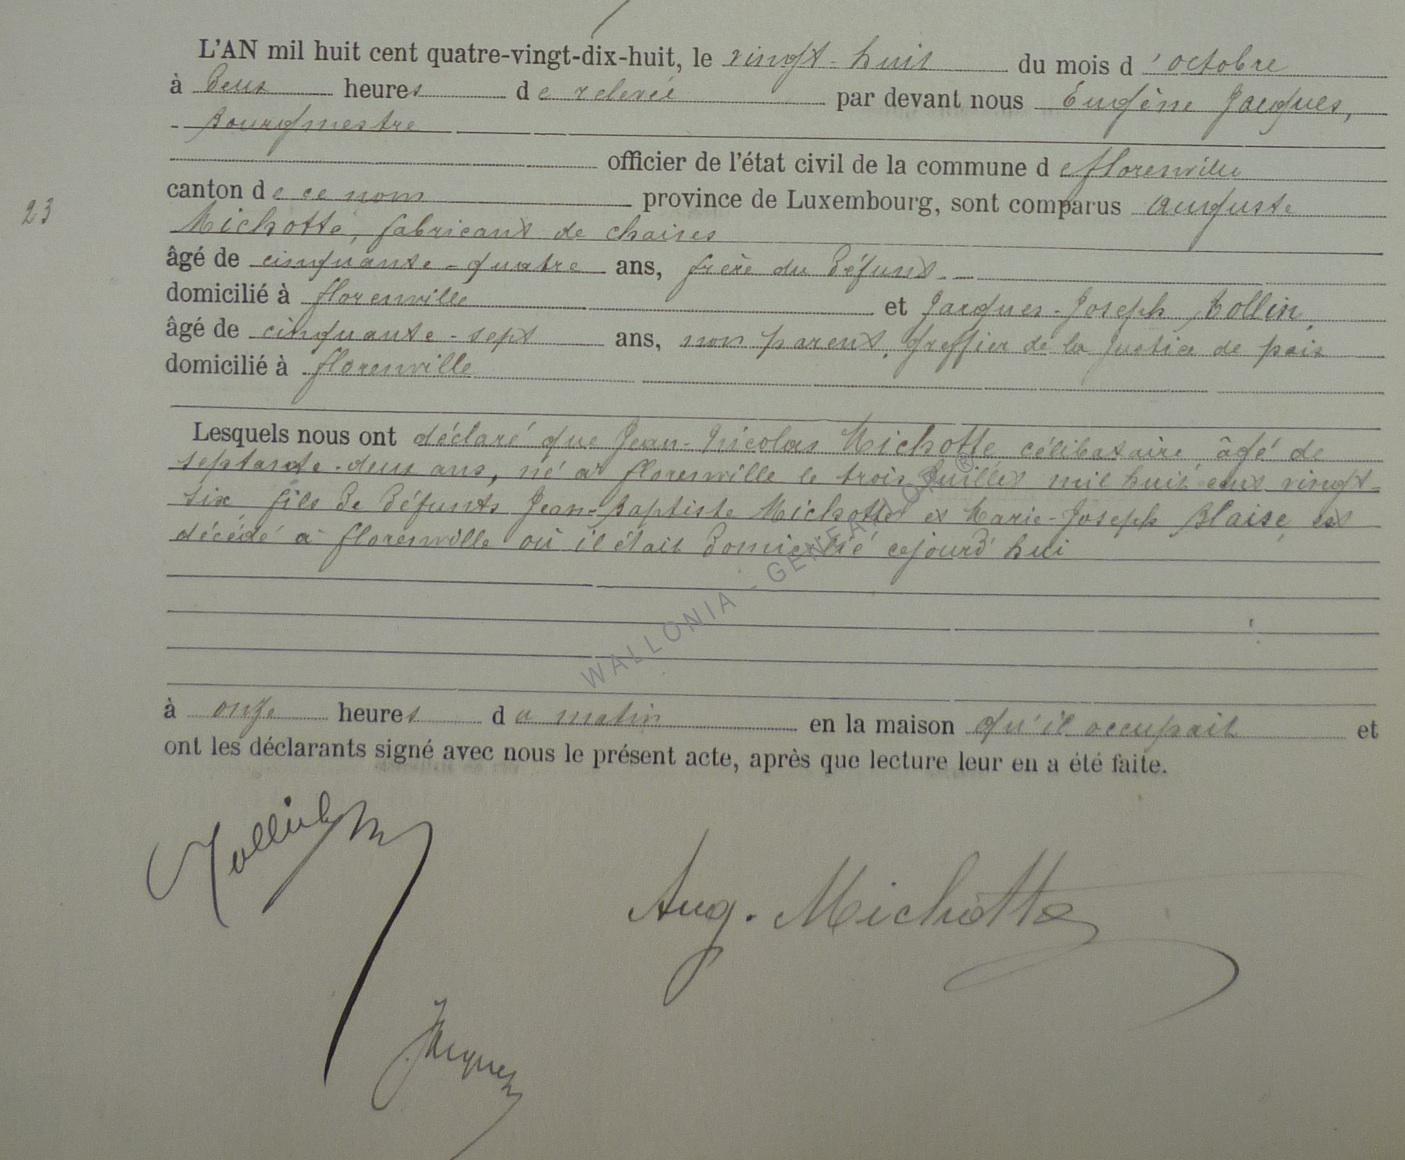 L'AN mil huit cent quatre-vingt-dix-huit, le vingt-huit du mois d'octobre
à deux heures de relevée par devant nous Eugène Jacques,
bourgmestre
officier de l'état civil de la commune de florenville
23
canton de ce nom province de Luxembourg, sont comparus Auguste
Michotte, fabricant de chaises
âgé de cinquante-quatre ans, frère du défunt
domicilié à florenville et Jacques-Joseph Collin,
âgé de cinquante-sept ans, non parent, greffier de la Justice de paix
domicilié à florenville
Lesquels nous ont déclaré que Jean-Nicolas Michotte célibataire, âgé de
septante-deux ans, né à florenville le trois Juillet mil huit cent vingt-
six, fils de défunts Jean-Baptiste Michotte et Marie-Joseph Blaise, est
décédé à florenville où il était domicilié cejourd'hui
WALLONIA - GENEALOGY ®
à onze heures du matin en la maison qu'il occupait et
ont les déclarants signé avec nous le présent acte, après que lecture leur en a été faite.
Aug. Michotte
Jacques